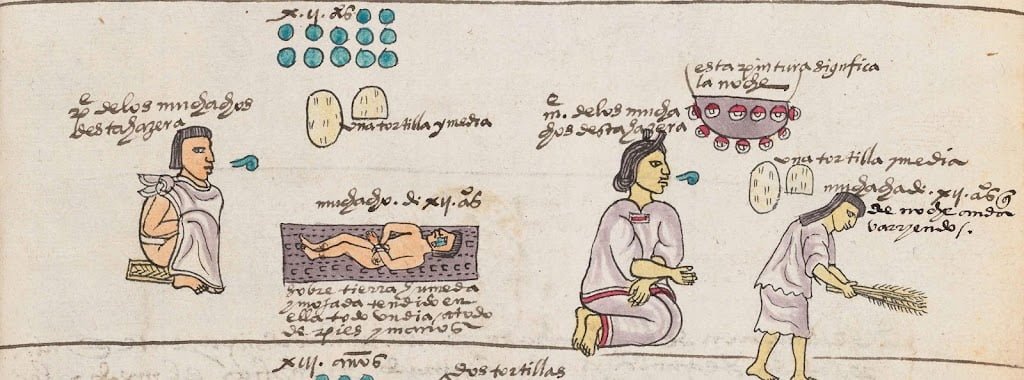 x.ii. años
pe. de los muchachos
desta hazera
una tortilla y media
muchacho. de xii. años
sobre tierra umeda
y mojada tendido en
ella todo un dia, atado
de pies y manos
me. de los mucha
chos desta hazera
esta pintura significa
la noche
una tortilla y media
muchacha de. xii. años q̃
de noche anda
varryendo.
xiii. años
dos tortillas